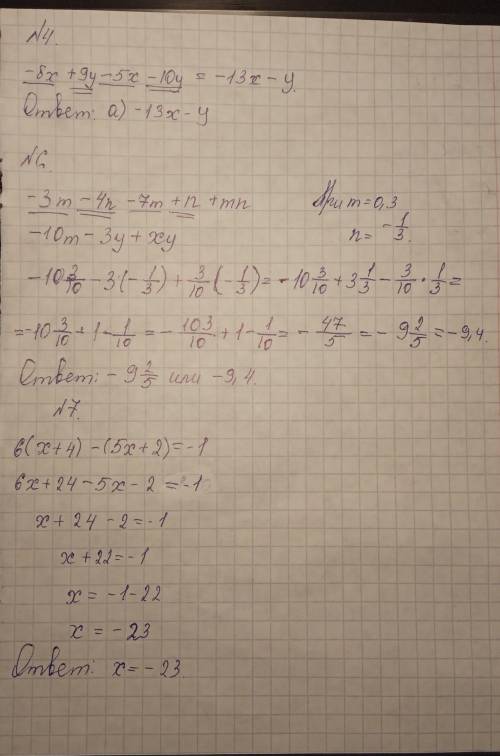 N4.
-8x +9y -5x -10y = -13x - y.
Ответ: а) -13x - y
N6.
-3m -4n -7m +n +mn При m=0,3
-10m - 3y + xy n= -1/3.
-10 3/10 - 3·(-1/3) + 3/10 (-1/3) = -10 3/10 + 3 1/3 - 3/10 · 1/3 =
= -10 3/10 + 1 - 1/10 = - 103/10 + 1 - 1/10 = - 47/5 = - 9 2/5 = -9,4.
Ответ: - 9 2/5 или -9,4.
N7.
6(x+4) - (5x+2) = -1
6x + 24 - 5x - 2 = -1
x + 24 - 2 = -1
x + 22 = -1
x = -1 - 22
x = -23
Ответ: x = -23.